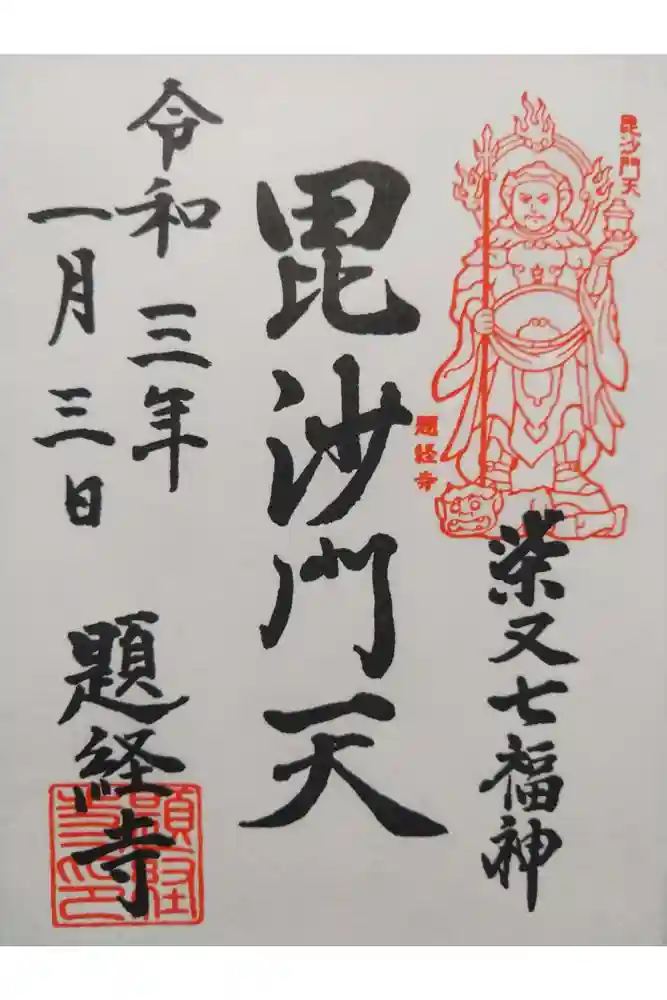 毘沙門天
題経寺
柴又七福神
毘沙門天
令和三年
一月三日
題経寺
題経寺印